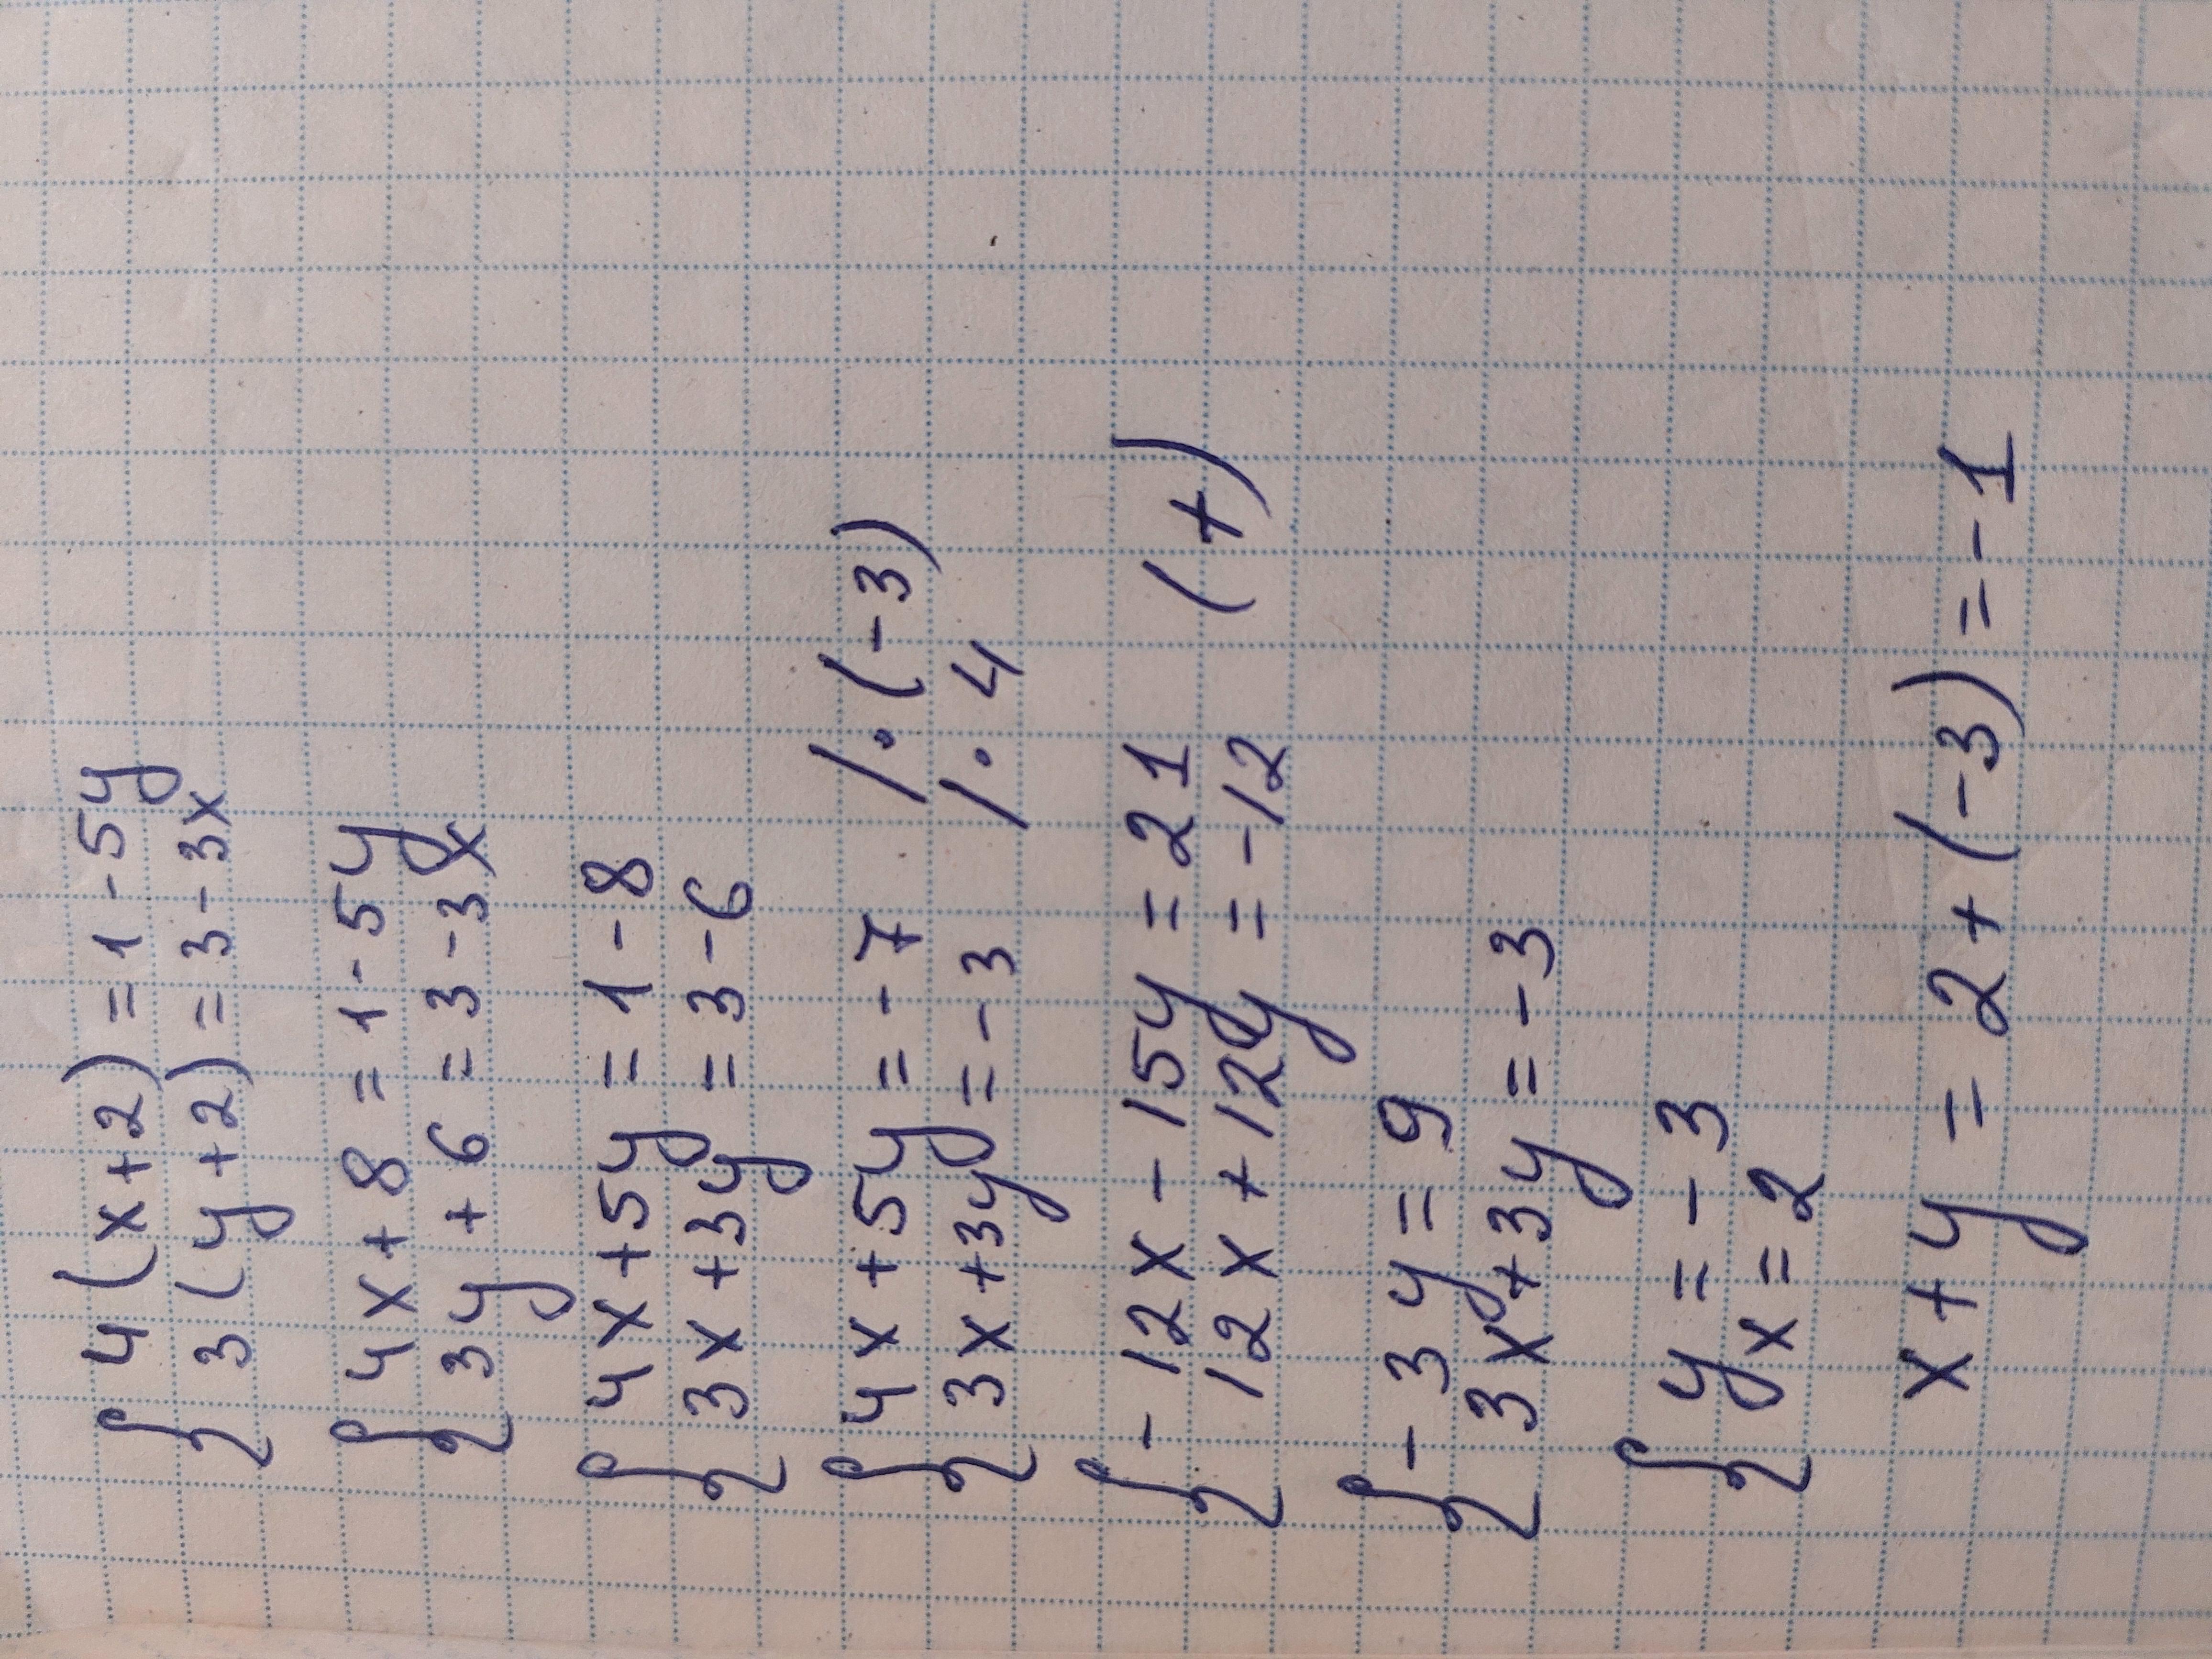 { 4(x+2) = 1-5y
3(y+2) = 3-3x
{ 4x+8 = 1-5y
3y+6 = 3-3x
{ 4x+5y = 1-8
3x+3y = 3-6
{ 4x+5y = -7 /·(-3)
3x+3y = -3 /·4
{ -12x-15y = 21
12x+12y = -12 (+)
{ -3y = 9
3x+3y = -3
{ y = -3
x = 2
x+y = 2+(-3) = -1